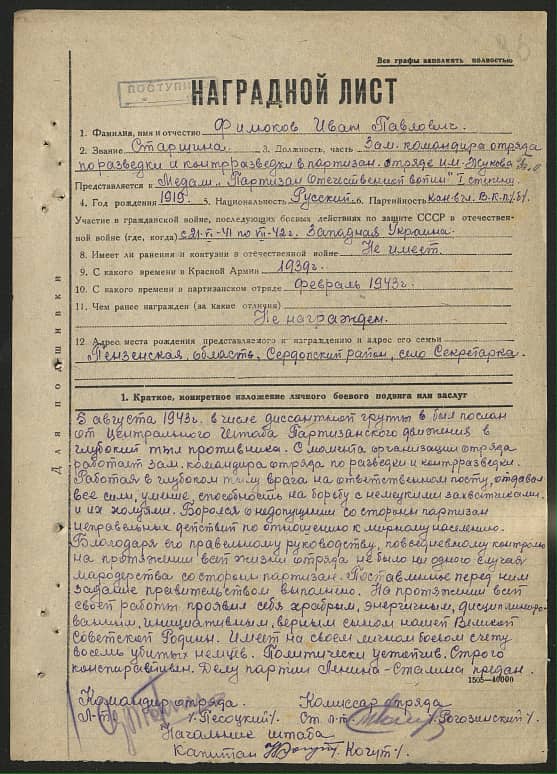 Все графы заполнять полностью
ПОСТУПИЛ
НАГРАДНОЙ ЛИСТ
1. Фамилия, имя и отчество Филюков Иван Павлович.
2. Звание Старшина. 3. Должность, часть Зам. командира отряда
по разведки и контрразведки в партизан. отряде им. Жукова
Представляется к Медал. „Партизан Отечественной войны" I степени
4. Год рождения 1919. 5. Национальность Русский. 6. Партийность Кан. в чл. В.К.П./б/.
Участие в гражданской войне, последующих боевых действиях по защите СССР в отечествен-
ной войне (где, когда) с 21-VI-41 по VII-42 г. Западная Украина.
8. Имеет ли ранения и контузии в отечественной войне Не имеет.
9. С какого времени в Красной Армии 1939 г.
10. С какого времени в партизанском отряде февраль 1943 г.
11. Чем ранее награжден (за какие отличия)
Не награжден.
12. Адрес места рождения представляемого к награждению и адрес его семьи
Пензенская область, Сердопский район, село Секретарка.
Для подшивки
1. Краткое, конкретное изложение личного боевого подвига или заслуг
5 августа 1943 г. в числе диссантной группы в был послан
от Центрального Штаба Партизанского движения в
глубокий тыл противника. С момента организации отряда
работает зам. командира отряда по разведки и контрразведки.
Работая в глубоком тылу врага на ответственном посту, отдавал
все силы, умение, способность на борьбу с немецкими захватчиками
и их холуями. Боролся о недопущии со стороны партизан
неправельных действий по отношению к мирному населению.
Благодаря его правельному руководству, повседневному контролю
на протяжении всей жизни отряда не было ни одного случая
мародерства со стороны партизан. Поставленые перед ним
задание правительством выполнено. На протяжении всей
своей работы проявил себя храбрым, энергичным, дисциплиниро-
ванным, инициативным, верным сыном нашей Великой
Советской Родины. Имеет на своем личном боевом счету
восемь убитых немцев. Политически устойчив. Строго
конспиративен. Делу партии Ленина-Сталина предан.
1505-40000
Командир отряда. Комиссар отряда
Л-т /Песоцкий/. Ст. л-т /Рогозинский/.
Начальние штаба
Капитан /Когут/.